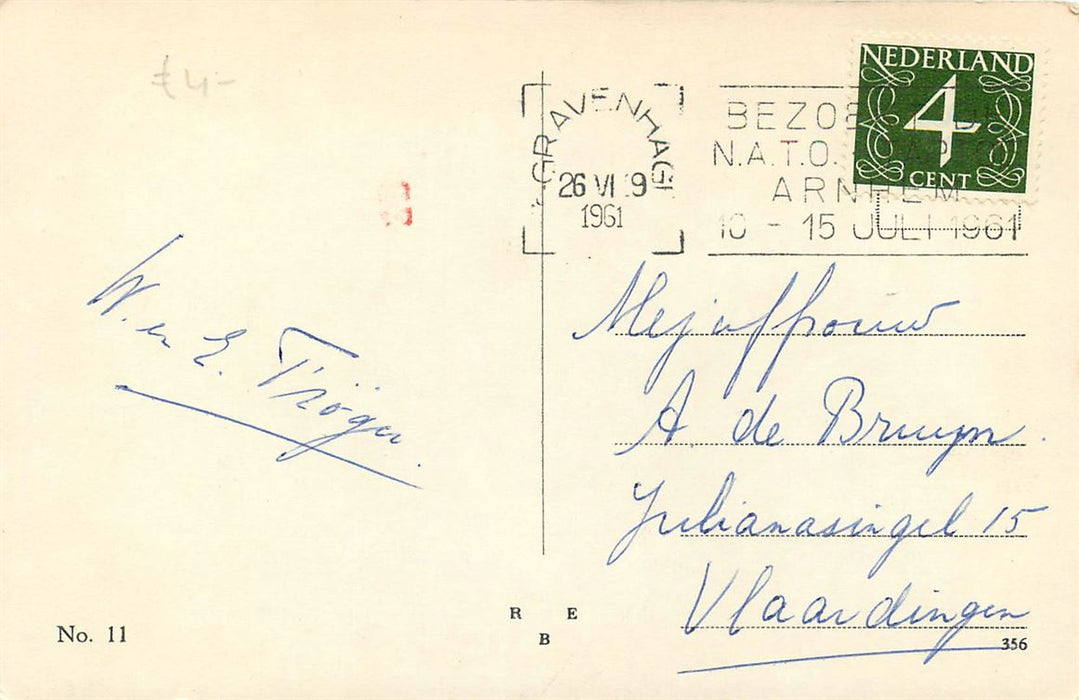 £4-
NEDERLAND
4
CENT
'S GRAVENHAGE
26 VI 19
1961
BEZOEKT DE
N.A.T.O. TAPTOE
ARNHEM
10 - 15 JULI 1961
W. en E. Tröger.
Mejuffrouw
A. de Bruyn.
Julianasingel 15
Vlaardingen
No. 11
R E
B
356